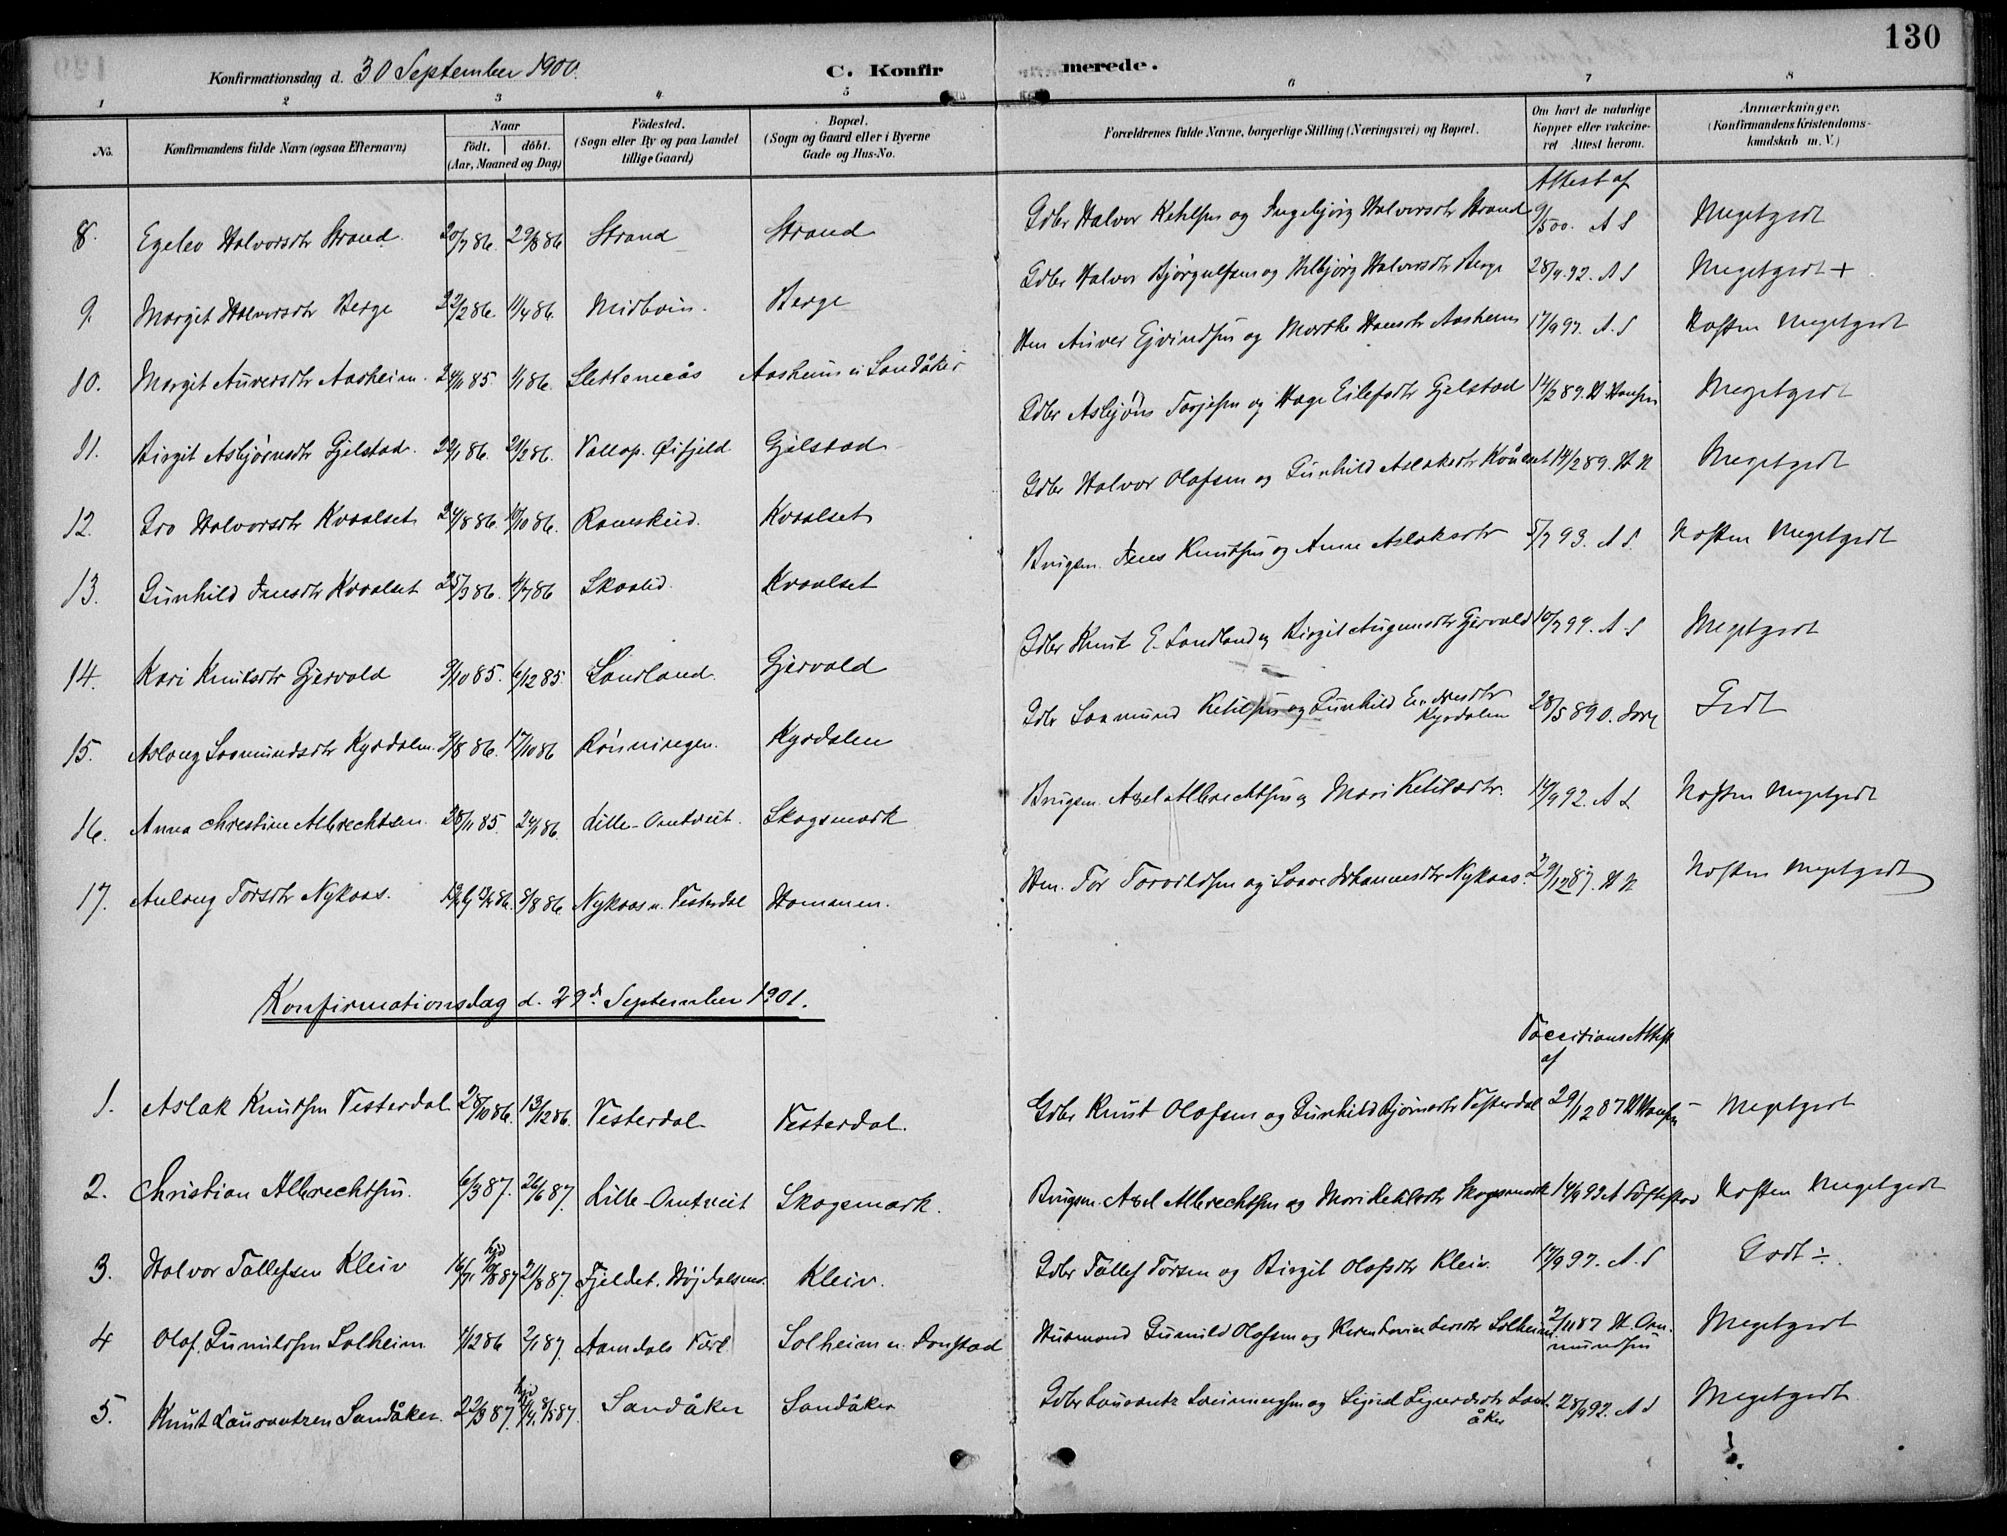 130
Konfirmationsdag d. 30 September 1900.
C. Konfirmerede.
1 2 3 4 5 6 7 8
No.
Konfirmandens fulde Navn (ogsaa Efternavn)
Naar
født. døbt.
(Aar, Maaned og Dag)
Fødested.
(Sogn eller By og paa Landet
tillige Gaard)
Bopæl.
(Sogn og Gaard eller i Byerne
Gade og Hus-No.
Forældrenes fulde Navne, borgerlige Stilling (Næringsvei) og Bopæl.
Om havt de naturlige
Kopper eller vakcine-
ret Attest herom.
Anmærkninger.
(Konfirmandens Kristendoms-
kundskab m. V.)
Attest af
8. Egelev Halvorsdtr Strand. 20/7 86. 29/8 86 Strand Strand Gdbr Halvor Ketilsen og Ingebjörg Halvorsdtr Strand 9/5 00. A S Megetgodt
9. Margit Halvorsdtr Berge 22/2 86. 11/4 86. Midbøin. Berge Gdbr Halvor Bjørgulfsen og Halvorsdtr Berge 28/4 92. A S Megetgodt +
10. Margit Auversdtr Aasheim. 24/11 85. 1/1 86. Slettemeås Aasheim u Sandåker Hm Auver Ejvindsen og Marthe Hansdtr Aasheim 17/9 97. A. S Næsten Megetgodt
11. Birgit Asbjørnsdtr Gjelstad. 22/1 86. 21/2 86. Vallap. Øifjeld Gjelstad Gdbr Asbjørn Torjesen og Hæge Eilefsdtr Gjelstad 14/2 89. H Hansen Megetgodt
12. Gro Halvorsdtr Kvaalset 24/8 86. 17/10 86. Romskeid. Kvaalset Gdbr Halvor Olafsen og Gunhild Aslaksdtr Kvålset 14/2 89. H H Megetgodt
13. Gunhild Jensdtr Kvaalset 25/3 86. 4/7 86 Skaalid. Kvaalset Brugsm. Jens Knudsen og Anne Aslaksdtr 5/7 93. A S. Næsten Megetgodt
14. Kari Knutsdtr Gjervold 9/10 85. 6/12 85. Sandland. Gjervold Gdbr Knut E. Sandland og Birgit Augunsdtr Gjervold 10/7 99. A. S Megetgodt
15. Aslaug Saamundsdtr Kyrdalen. 9/8 86. 17/10 86 Rønningen. Kyrdalen Gdbr Saamund Ketilsen og Gunhild Kyrdalen 28/5 890. Godt
16. Anna Christine Albrechtsen. 28/11 85. 24/1 86. Lille-Omtveit. Skogsmark Brugsm. Axel Albrechtsen og Mari Ketilsdtr. 14/9 92. A S Næsten Megetgodt
17. Aslaug Torsdtr Nykaas. 8/8 86 Nykaas u. Vesterdal Homanen. Hm. Tor Torvildsen og Johannesdtr Nykaas. 29/12 87. H H Næsten Megetgodt
Konfirmationsdag d. 29d. September 1901.
Vaccinations Attest
af
1. Aslak Knudsen Vesterdal 28/10 86. 13/12 86. Vesterdal Vesterdal. Gdbr Knut Olafsen og Gunhild Bjørnsdtr Vesterdal 29/12 87 H Hansen Megetgodt
2. Christian Albrechtsen. 6/3 87. 26/6 87. Lille-Omtveit Skogsmark. Brugsm. Axel Albrechtsen og Mari Ketilsdtr Skogsmark 14/9 92 A Næsten Megetgodt
3. Halvor Tallefsen Kleiv 16/7 hjd 87 21/8 87. Fjeldet, Højdalsmo. Kleiv. Gdbr Tallef Torsen og Birgit Olafsdtr Kleiv. 17/9 97. A. S Godt ÷.
4 Olaf. Gunuldsen Solheim 1/12 86 2/1 87. Aamdals Værk Solheim u. Husmand Gunuld Olafsen og Karen Solheim 2/11 87 H. Om-
mundsen Megetgodt
5. Knut Laurantzen Sandåker. 22/3 87. hjd 8/5 87. Sandåker Sandåker Gdbr Laurantz og Sigrid Sigurdsdtr Sand-
åker 28/4 92. A S Megetgodt